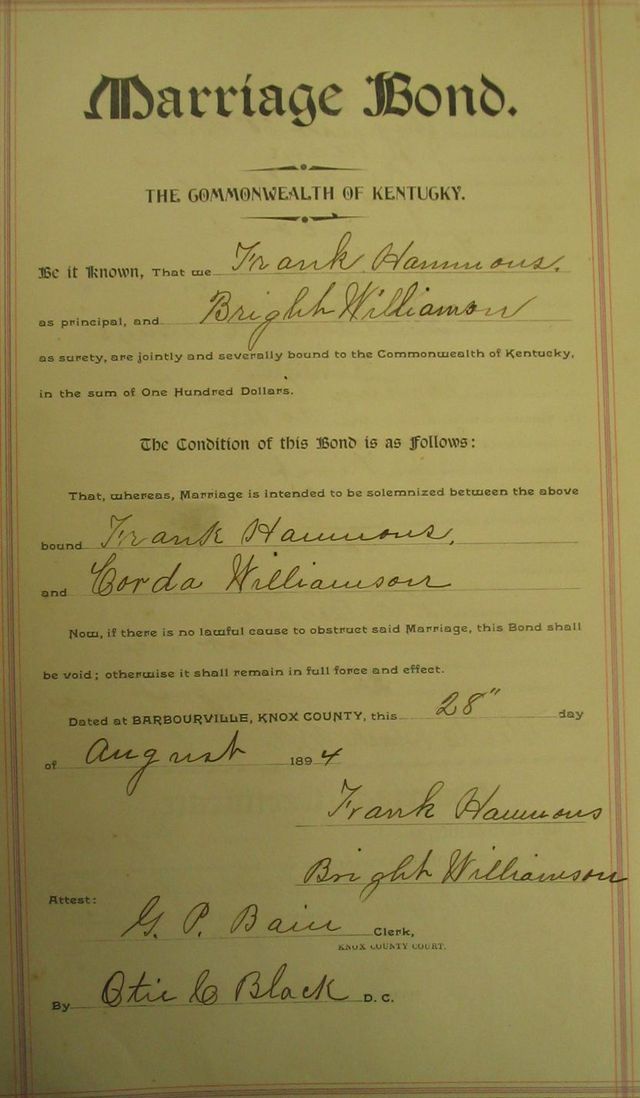 Marriage Bond.
THE COMMONWEALTH OF KENTUCKY.
Be it Known, That we Frank Hammons.
as principal, and Bright Williamson
as surety, are jointly and severally bound to the Commonwealth of Kentucky,
in the sum of One Hundred Dollars.
The Condition of this Bond is as Follows:
That, whereas, Marriage is intended to be solemnized between the above
bound Frank Hammons.
and Corda Williamson
Now, if there is no lawful cause to obstruct said Marriage, this Bond shall
be void; otherwise it shall remain in full force and effect.
Dated at BARBOURVILLE, KNOX COUNTY, this 28" day
of August 1894
Frank Hammons
Bright Williamson
Attest:
G. P. Bain Clerk,
KNOX COUNTY COURT.
By Otie C Black D. C.